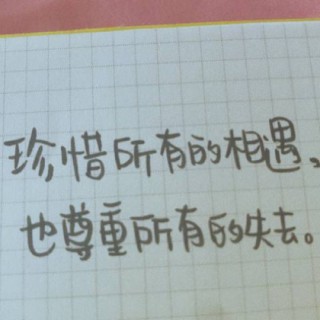 珍惜所有的相遇、
也尊重所有的失去。